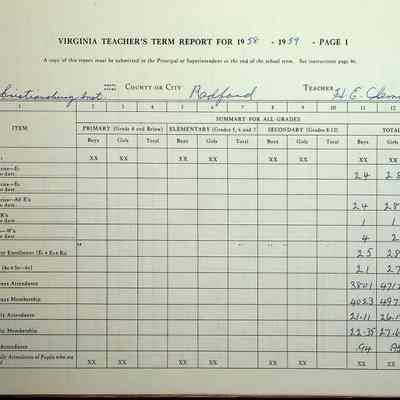 VIRGINIA TEACHER'S TERM REPORT FOR 1958 - 1959 - PAGE 1
A copy of this report must be submitted to the Principal or Superintendent at the end of the school term. See instructions page 46.
Christiansburg Inst. COUNTY OR CITY Radford TEACHER H. E. Clem
1 2 3 4 5 6 7 8 9 10 11 12
SUMMARY FOR ALL GRADES
ITEM PRIMARY (Grade 4 and Below) ELEMENTARY (Grades 5, 6 and 7) SECONDARY (Grades 8-12) TOTAL
Boys Girls Total Boys Girls Total Boys Girls Total Boys Girls
XX XX XX XX XX XX XX XX
24 28
24 28
1 1
4 2
Enrollment 25 28
21 27
Attendance 3801
Membership 4023 497
Attendance 21.11 26.1
Membership 22.35 27.6
Attendance .94 .95
Daily Attendance of Pupils who are XX XX XX XX XX XX XX XX